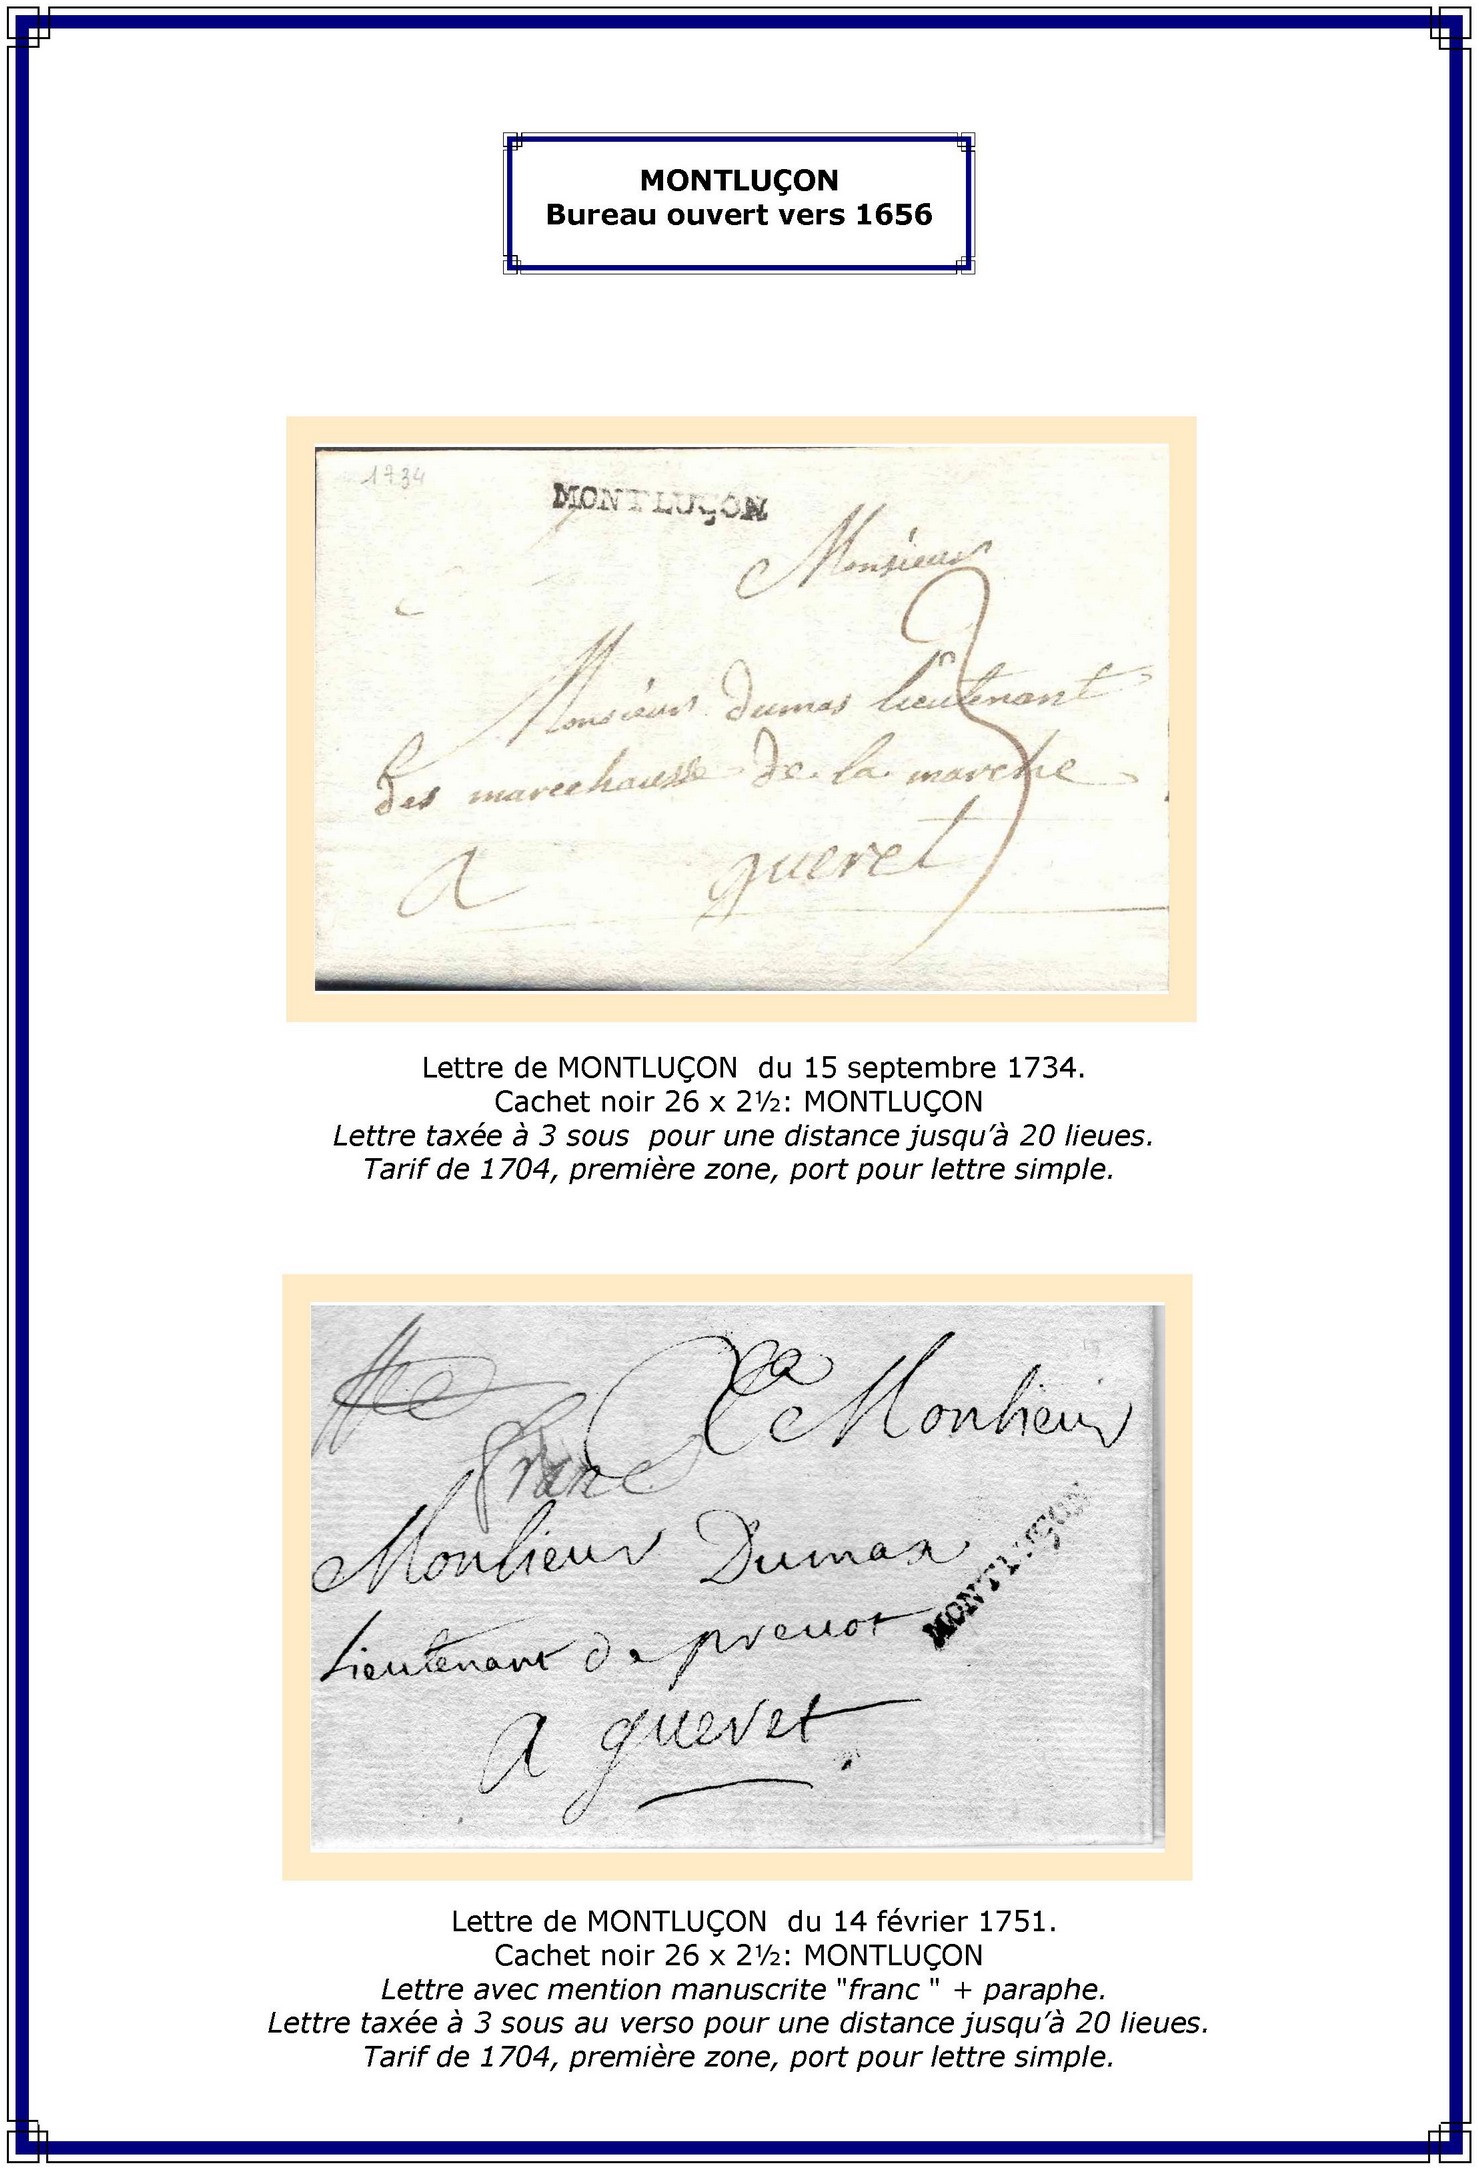 MONTLUÇON
Bureau ouvert vers 1656
1734
MONTLUÇON
Monsieur
3
Monsieur dumas lieutenant
des marechausse de la marche
a gueret
Lettre de MONTLUÇON du 15 septembre 1734.
Cachet noir 26 x 2½: MONTLUÇON
Lettre taxée à 3 sous pour une distance jusqu’à 20 lieues.
Tarif de 1704, première zone, port pour lettre simple.
a Monsieur
franc
Monsieur Dumas
MONTLUÇON
Lieutenant de prevot
a gueret
Lettre de MONTLUÇON du 14 février 1751.
Cachet noir 26 x 2½: MONTLUÇON
Lettre avec mention manuscrite "franc " + paraphe.
Lettre taxée à 3 sous au verso pour une distance jusqu’à 20 lieues.
Tarif de 1704, première zone, port pour lettre simple.